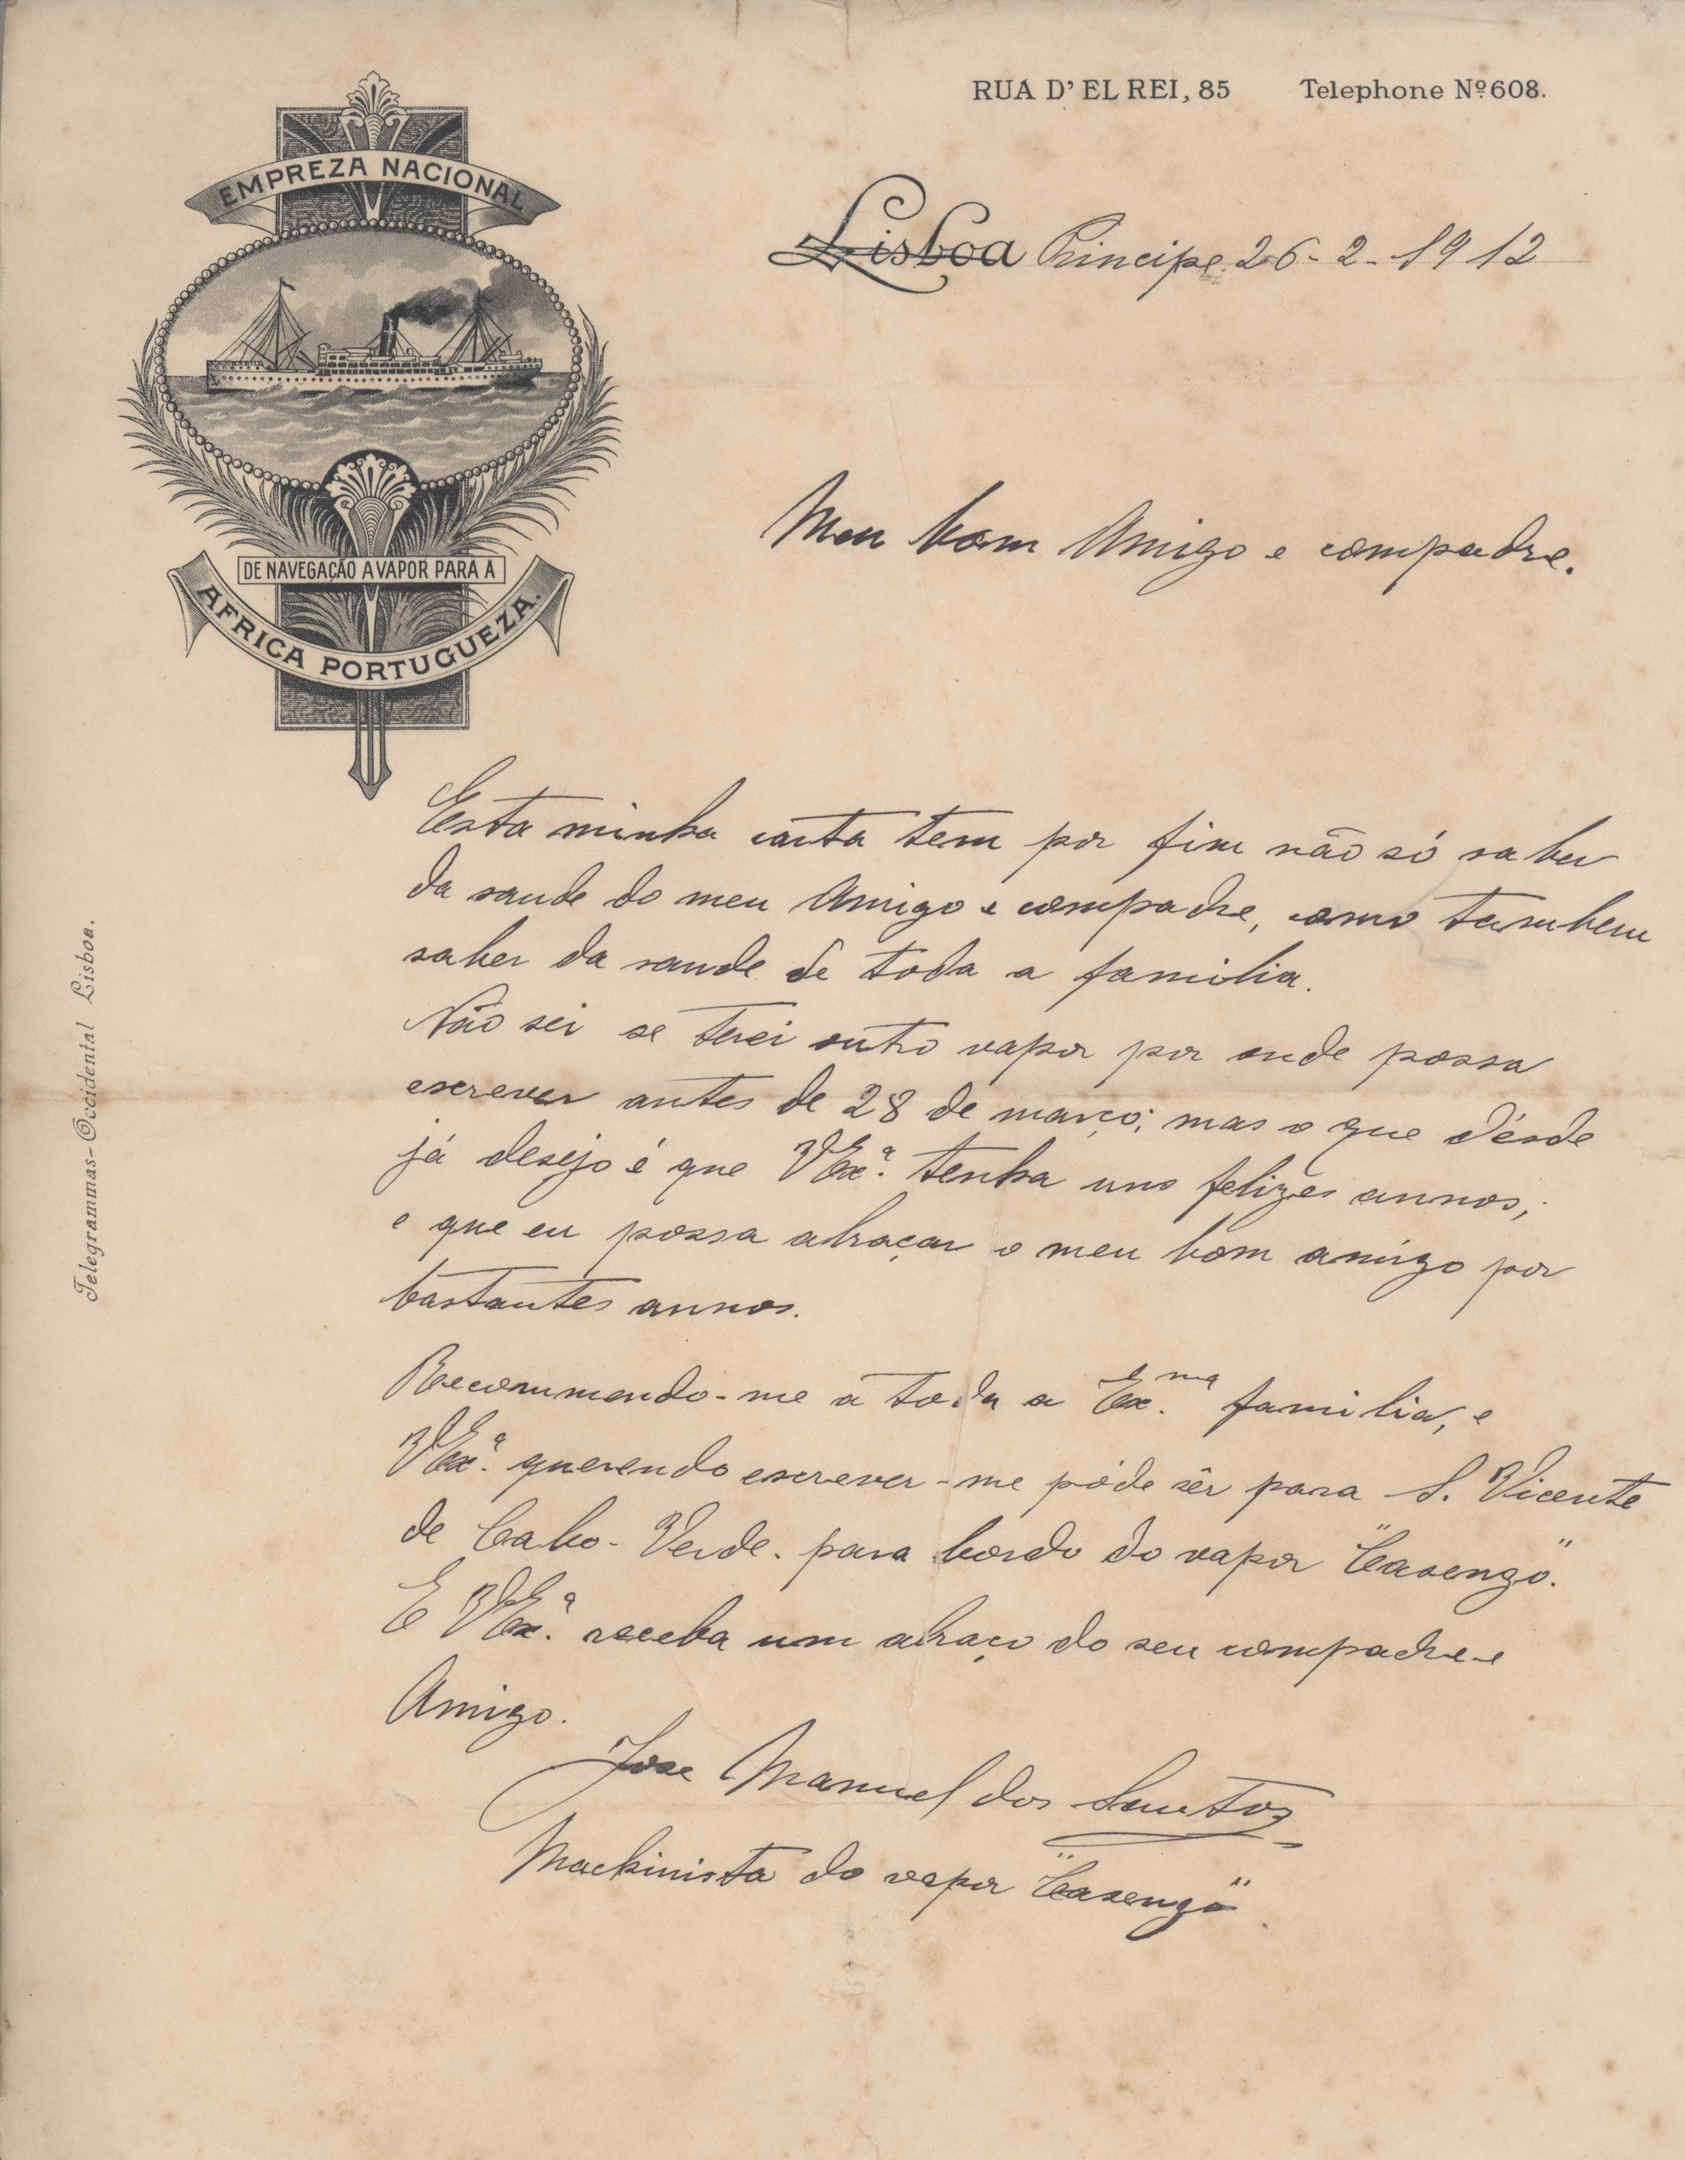 RUA D' EL REI, 85 Telephone Nº 608.
EMPREZA NACIONAL
DE NAVEGAÇÃO A VAPOR PARA A
AFRICA PORTUGUEZA.
Lisboa Principe 26-2-1912
Meu bom Amigo e compadre.
Esta minha carta tem por fim não só saber
da saude do meu Amigo e compadre, como tambem
saber da saude de toda a familia.
Não sei se terei outro vapor por onde possa
escrever antes de 28 de março; mas o que désde
já desejo é que VExª. tenha uns felizes annos,
e que eu possa abraçar o meu bom amigo por
bastantes annos.
Recommendo-me a toda a Ex.ma familia, e
VExª. querendo escrever-me póde sêr para S. Vicente
de Cabo-Verde. para bordo do vapor "Casengo".
E VExª. receba um abraço do seu compadre e
Amigo.
Jose Manuel dos Santos
Machinista do vapor "Casengo"
Telegrammas-Occidental Lisboa.